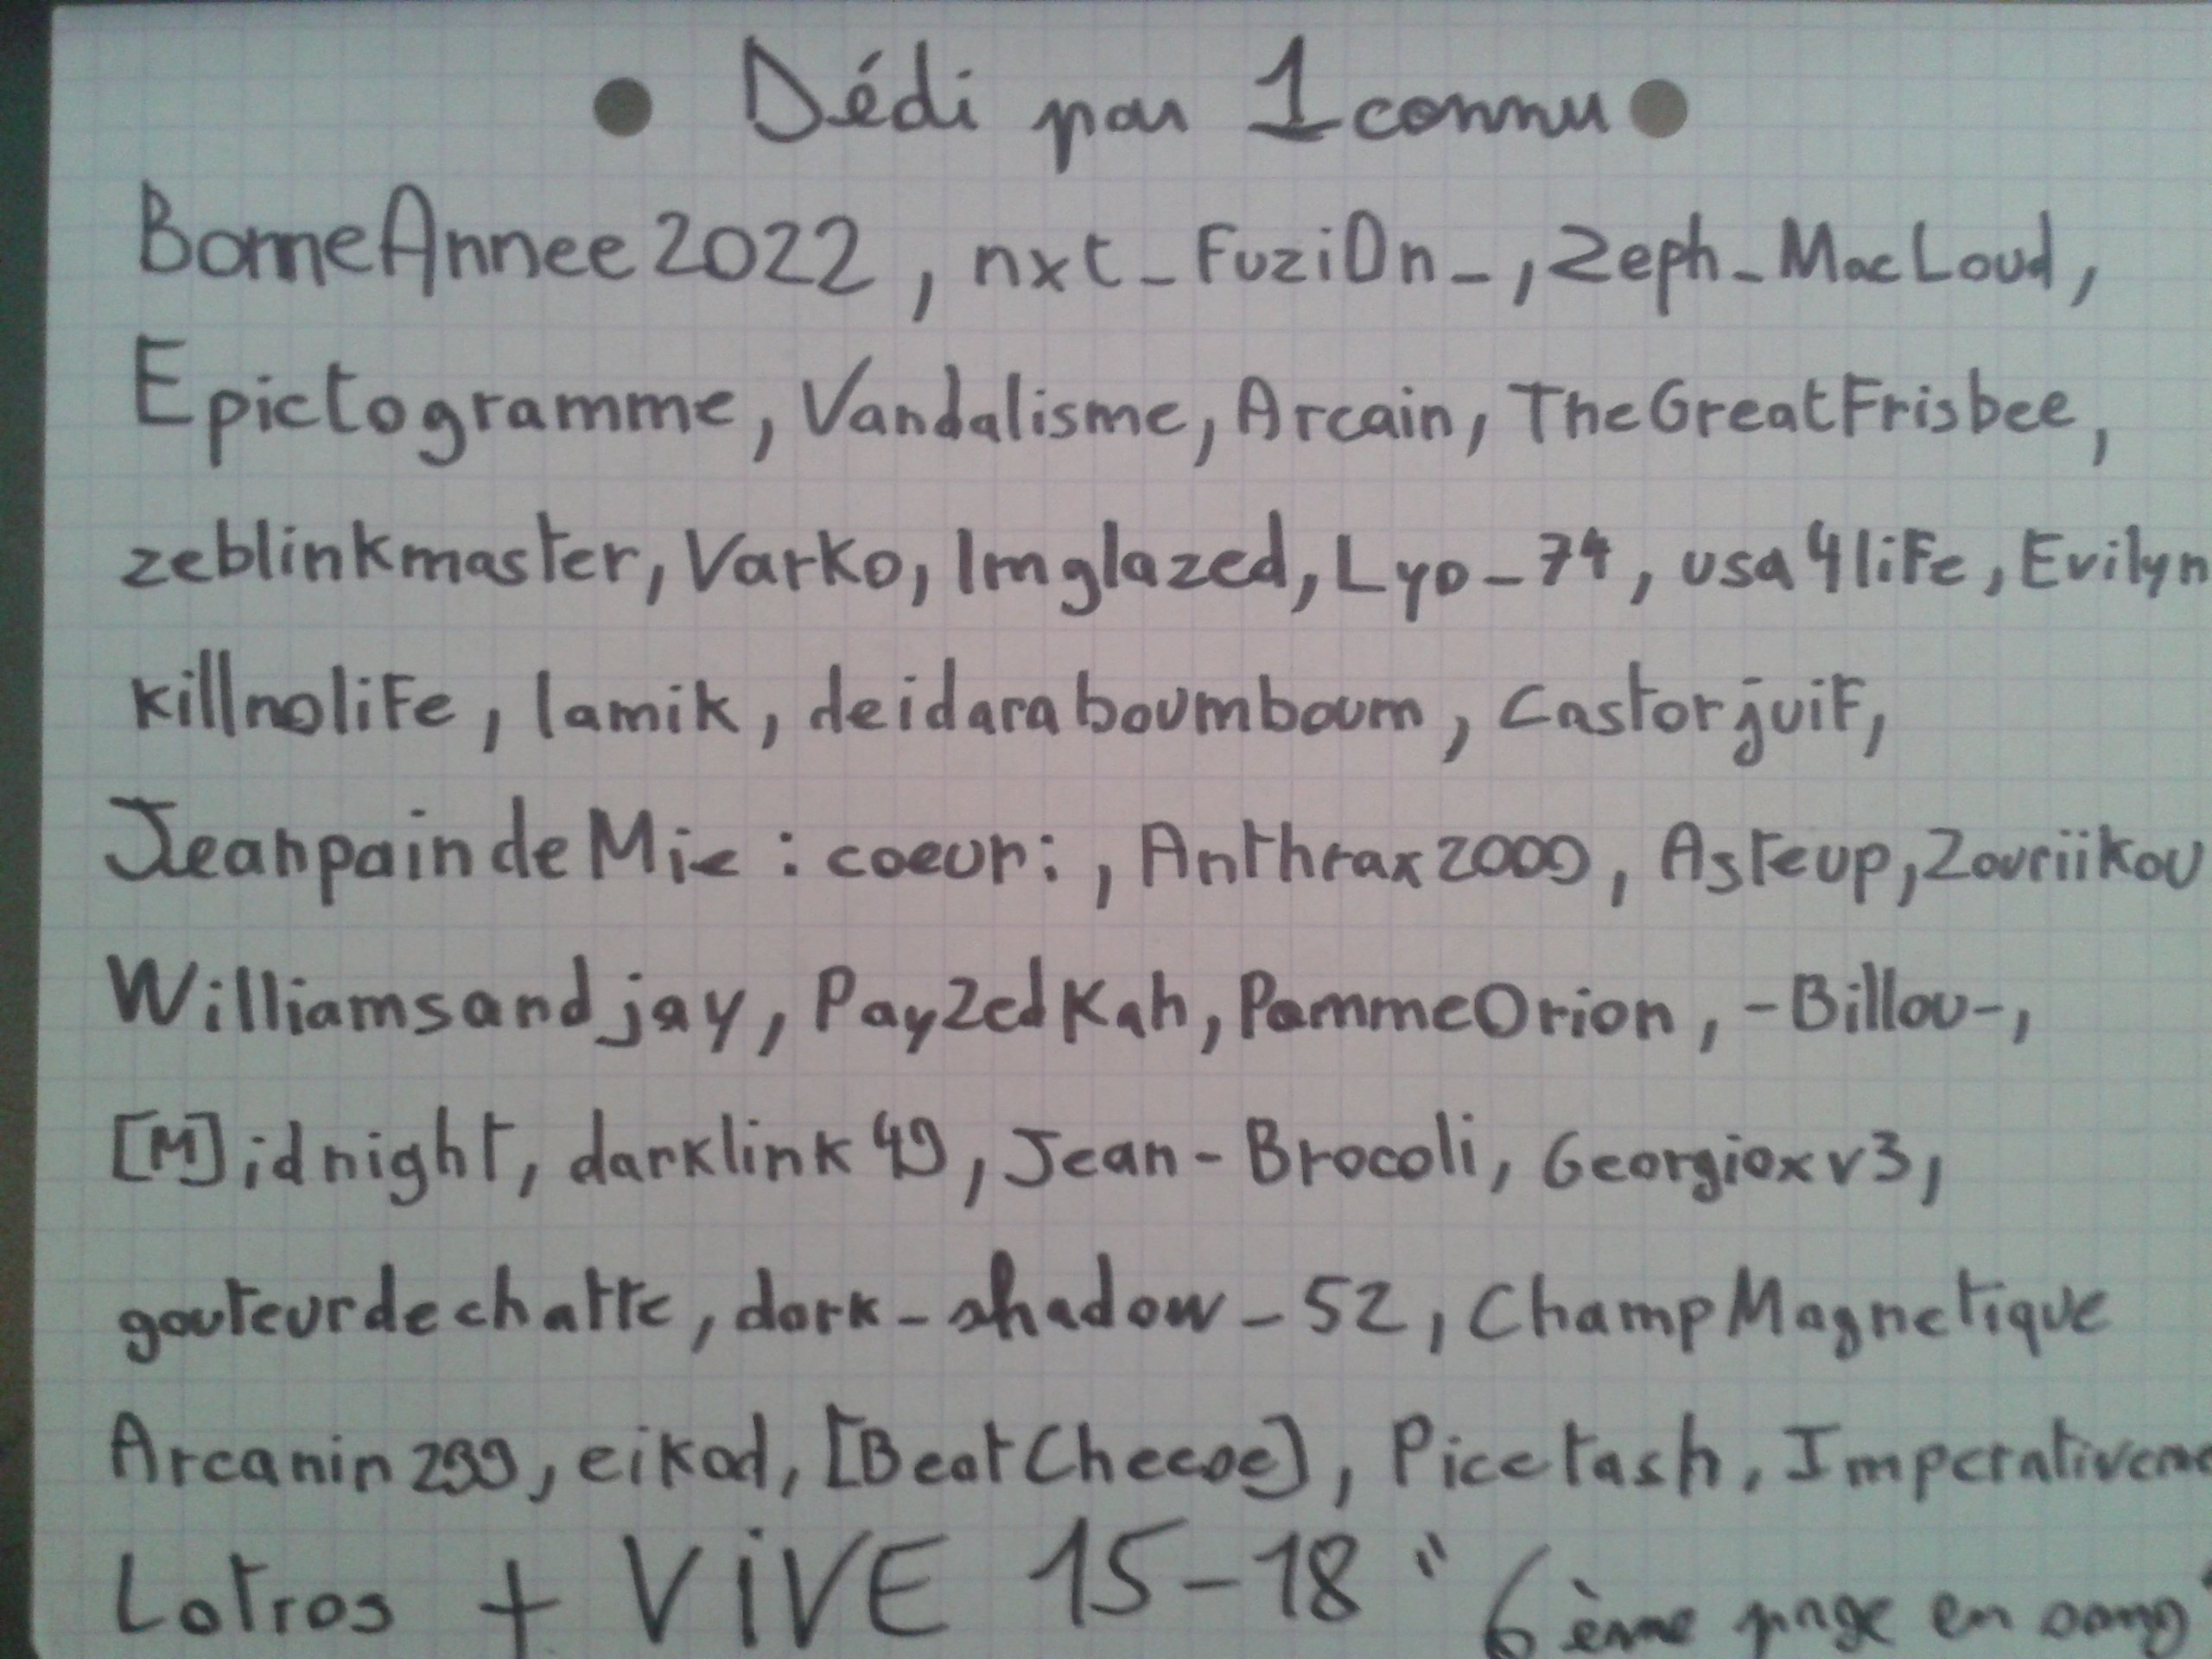 • Dédi par 1connu •
BonneAnnee2022, nxt_FuziOn_, Zeph_MacLoud,
Epictogramme, Vandalisme, Arcain, TheGreatFrisbee,
zeblinkmaster, Varko, Imglazed, Lyo_74, usa4life, Evilyn
killnolife, lamik, deidaraboumboum, Castorjuif,
JeanpaindeMie :coeur:, Anthrax2009, Asteup, Zouriikou
Williamsandjay, PayZedKah, PommeOrion, -Billou-,
[M]idnight, darklink49, Jean-Brocoli, Georgioxv3,
gouteurdechatte, dark-shadow-52, ChampMagnetique
Arcanin299, eikod, [BeatCheese], Picetash, Imperativeme
Lotros + ViVE 15-18 " 6ème page en sang"